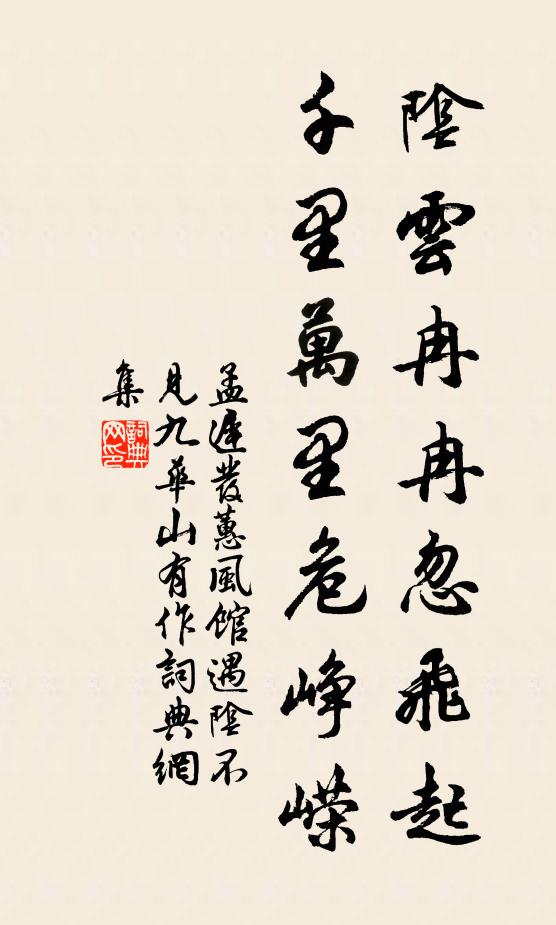 陰雲冉冉忽飛起
千里萬里危崢嶸
孟遲發蕙風館遇陰不
見九華山有作詞典網
集
詞典
网印